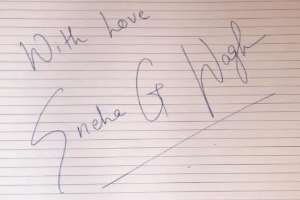 With Love
Sneha G Wagh